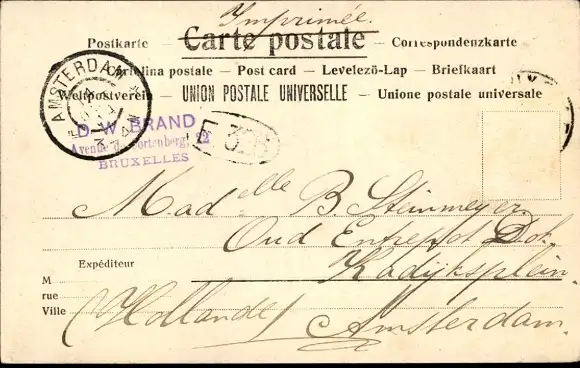 Imprimée.
Postkarte — Carte postale — Correspondenzkarte
Cartolina postale — Post card — Levelező-Lap — Briefkaart
Weltpostverein — UNION POSTALE UNIVERSELLE — Unione postale universale
AMSTERDAM
D. W. BRAND
Avenue d. Cortenberg, 22
BRUXELLES
Madelle B. Steinmeyer.
Oud Entrepot Dok
Expéditeur
Kadijksplein.
M
rue
Ville
(Hollande) Amsterdam.